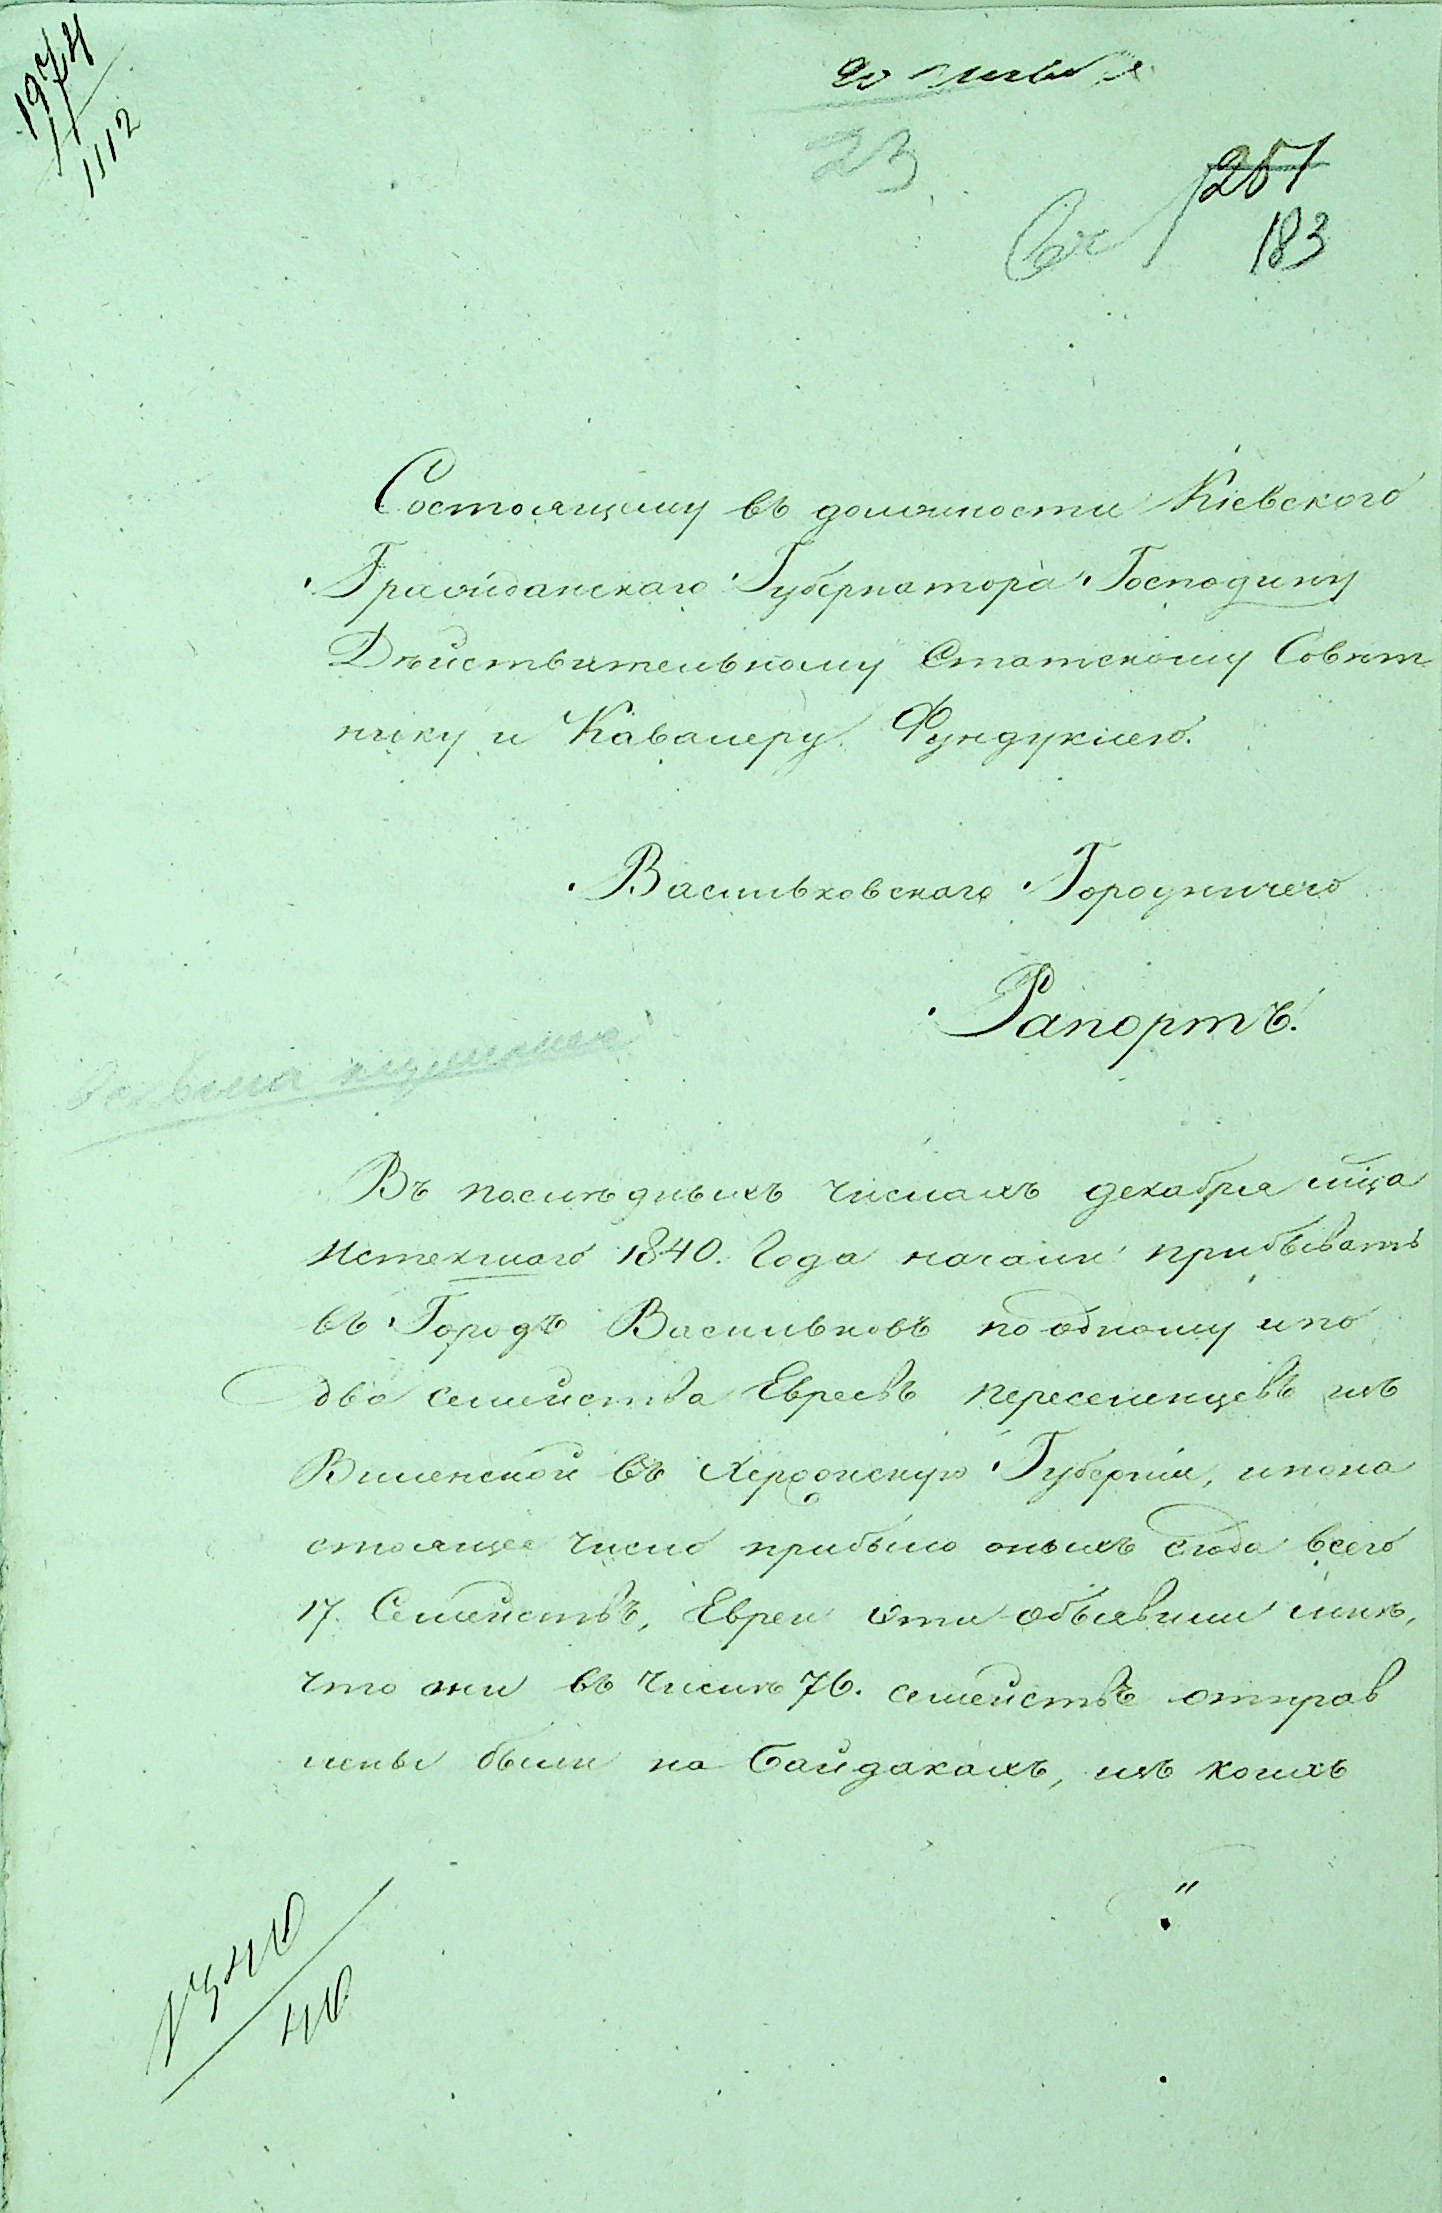 1974
1112
20 января
23
251
183
Состоящему въ должности Кіевского
Гражданскаго Губернатора Господину
Действительному Статскому Совѣт
нику и Кавалеру Фундуклею.
Васильковскаго Городничего
Рапортъ.
Въ послѣдныхъ числахъ декабря мца
истекшаго 1840. Года начали прибывать
въ Городъ Васильковъ по одному и по
два семейства Евреевъ переселенцевъ изъ
Виленской въ Херсонскую Губернiи, и по на
стоящее число прибыло оныхъ сюда всего
17. Семействъ, Евреи эти объявили мнѣ,
что они въ числѣ 76. семействъ отправ
лены были на Байдакахъ, изъ коихъ